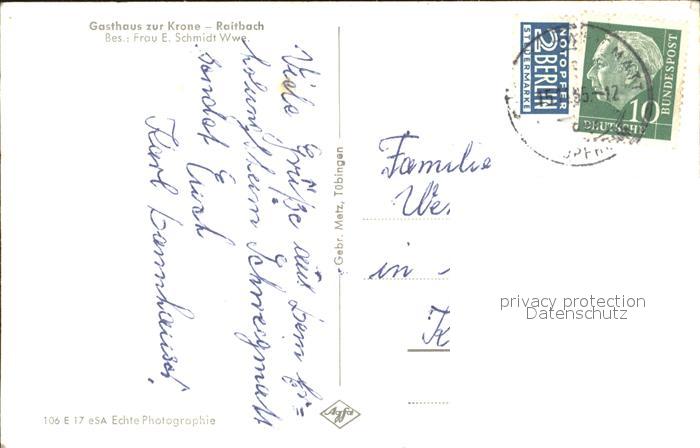 Gasthaus zur Krone – Raitbach
Bes.: Frau E. Schmidt Wwe.
Viele Grüße aus dem Er=
holungsheim Schweigmatt
sendet Euch
Karl
Gebr. Metz, Tübingen
106 E 17 eSA Echte Photographie
Agfa
NOTOPFER
2 BERLIN
STEUERMARKE
10
DEUTSCHE
BUNDESPOST
Familie
We
in
K
privacy protection
Datenschutz